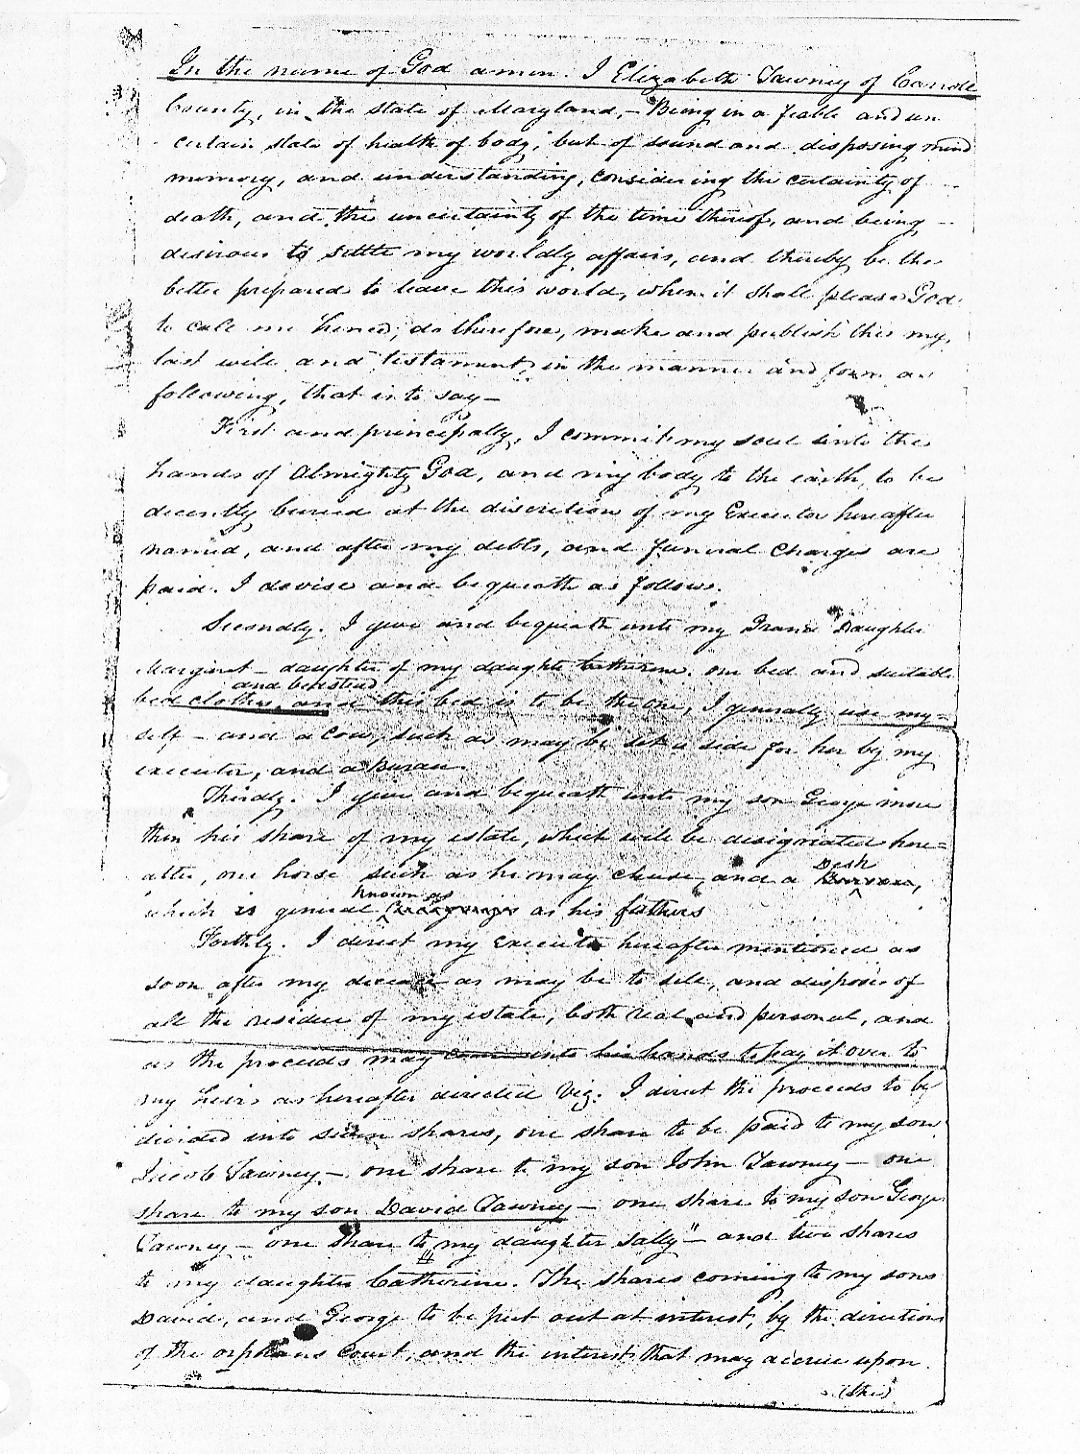 In the name of God amen. I Elizabeth Tawney of Carroll
County, in the state of Maryland,- Being in a feable and un
certain state of health of body, but of sound and disposing mind
memory, and understanding, considering the certainty of
death, and the uncertainty of the time thereof, and being
desirous to settle my worldly affairs, and thereby be the
better prepared to leave this world, when it shall please God
to call me hence, do therefore, make and publish this my
last will and testament, in the manner and form as
following, that is to say-
First and principally, I commit my soul into the
hands of Almighty God, and my body to the earth, to be
decently buried at the discretion of my Executor hereafter
named, and after my debts, and funeral Charges are
paid. I devise and bequeath as follows.
Secondly. I give and bequeath unto my Grand Daughter
Margaret - daughter of my daughter Catherine. one bed and suitable
and bedstead
bed clothes, and this bed is to be the one, I generally use my=
self - and a Cow, such as may be set a side for her by my
executor, and a Bureau.
Thirdly. I give and bequeath unto my son George more
than his share of my estate, which will be designated here=
after, one horse such as he may chuse, and a Desk
known as
which is general as his fathers
Forthly. I direct my Executor hereafter mentioned as
soon after my decease as may be to sell, and dispose of
all the residue of my estate, both real and personal, and
as the proceeds may come into his hands to pay it over to
my heirs as hereafter directed Viz. I direct the proceeds to be
divided into seven shares, one share to be paid to my son
Jacob Tawney - one share to my son John Tawney - one
share to my son David Tawney - one share to my son George
Tawney - one share to my daughter Sally" - and two shares
to my daughter Catherine. The shares coming to my sons
David, and George to be put out at interest, by the direction
of the orphans Court, and the interest that may accrue upon
(the)